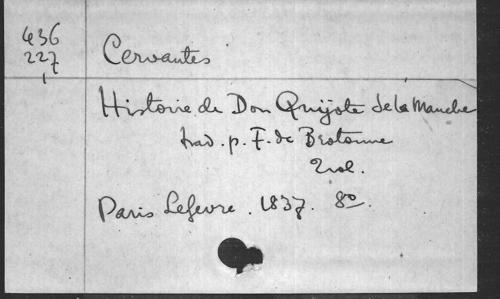 436
227
Cervantes
Histoire de Don Quijote de la Manche
trad. p. F. de Brotonne
2 vol.
Paris Lefevre. 1837. 8º.